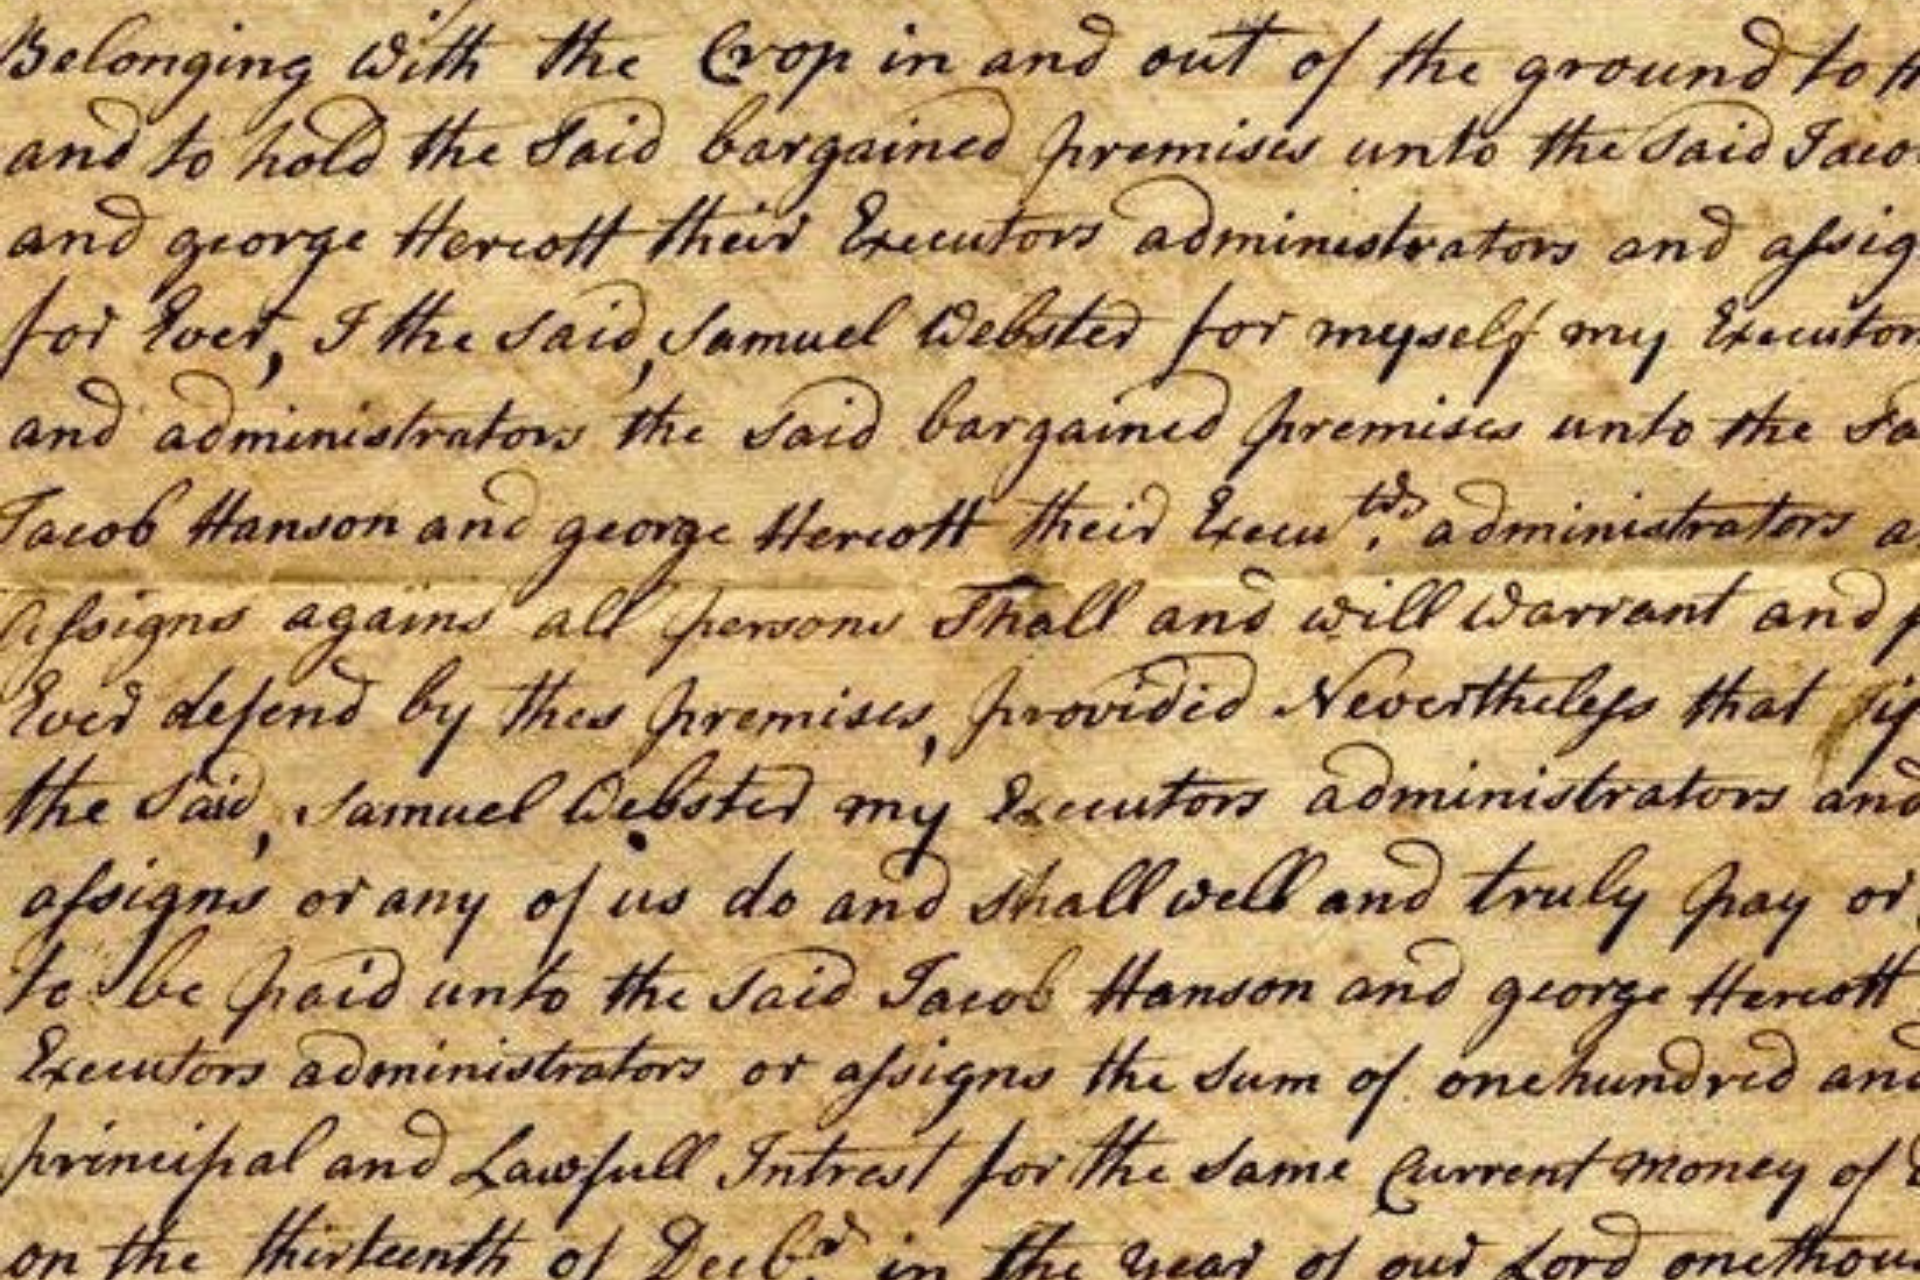 Belonging with the Crop in and out of the ground to
and to hold the Said bargained premises unto the Said Jaco
and george Hercott their Executors administrators and assig
for Ever, I the said, Samuel Webster for myself my Executor
and administrators the said bargained premises unto the Sa
Jacob Hanson and george Hercott their Execu.tors administrators a
Assigns agains all persons Shall and will warrant and f
Ever defend by thes premises, provided Nevertheless that if
the Said, Samuel Webster my Executors administrators and
assigns or any of us do and shall well and truly pay or
to be paid unto the said Jacob Hanson and george Hercott
Executors administrators or assigns the sum of onehundred and
principal and Lawfull Intrest for the same Current money of
on the thirteenth of Decb.r in the year of our Lord onethou